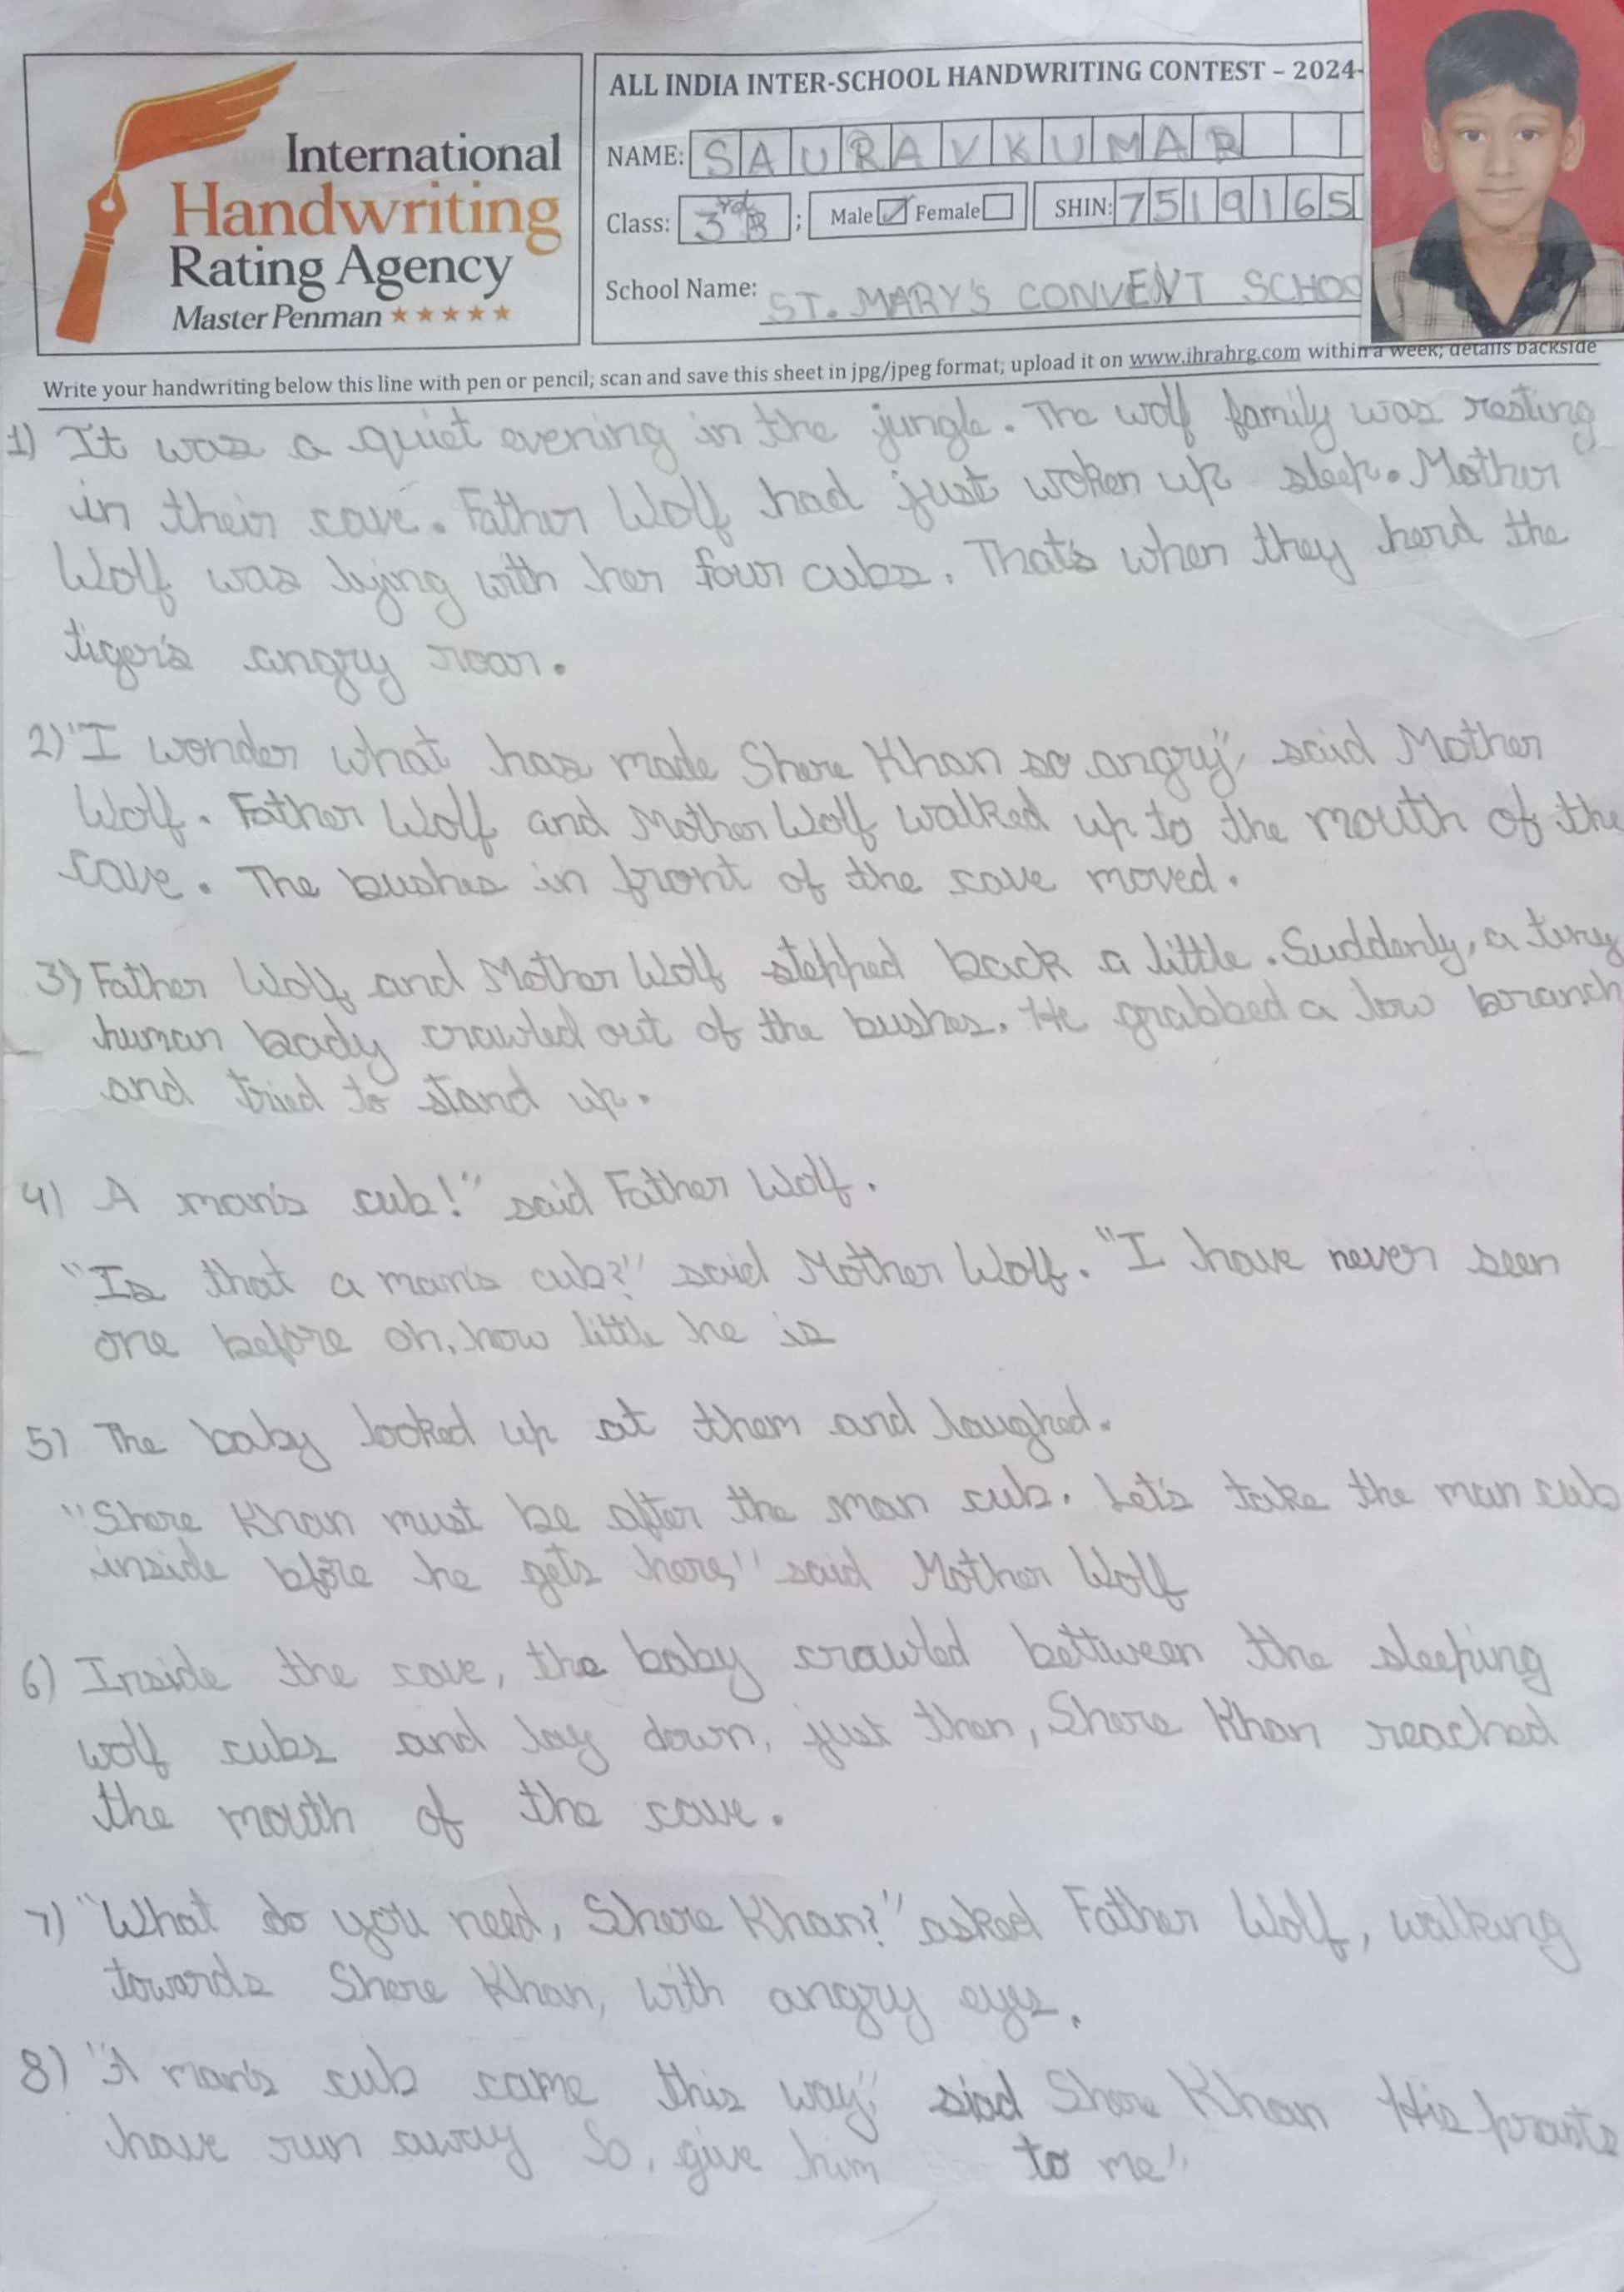 International
Handwriting
Rating Agency
Master Penman ★★★★★
ALL INDIA INTER-SCHOOL HANDWRITING CONTEST – 2024-
NAME: SAURAVKUMAR
Class: 3rd B ; Male ☑ Female ☐ SHIN: 7519165
School Name: ST. MARY'S CONVENT SCHOO
Write your handwriting below this line with pen or pencil; scan and save this sheet in jpg/jpeg format; upload it on www.ihrahrg.com within a week; details backside
1) It was a quiet evening in the jungle. The wolf family was resting
in their cave. Father Wolf had just woken up sleep. Mother
Wolf was lying with her four cubs. That's when they herd the
tiger's angry roar.
2) "I wonder what has made Shere Khan so angry", said Mother
Wolf. Father Wolf and Mother Wolf walked up to the mouth of the
cave. The bushes in front of the cave moved.
3) Father Wolf and Mother Wolf stepped back a little. Suddenly, a tiny
human bady crawled out of the bushes. He grabbed a low branch
and tried to stand up.
4) A man's cub!" said Father Wolf.
"Is that a man's cub?" said Mother Wolf. "I have never seen
one before oh, how little he is
5) The baby looked up at them and laughed.
"Shere Khan must be after the man cub. Let's take the man cub
inside bfore he gets here," said Mother Wolf
6) Inside the cave, the baby crawled bettween the sleeping
wolf cubs and lay down, just then, Shere Khan reached
the mouth of the cave.
7) "What do you need, Shere Khan?" asked Father Wolf, walking
towards Shere Khan, with angry eyes.
8) "A man's cub came this way," siad Shere Khan His
have run away So, give him to me"